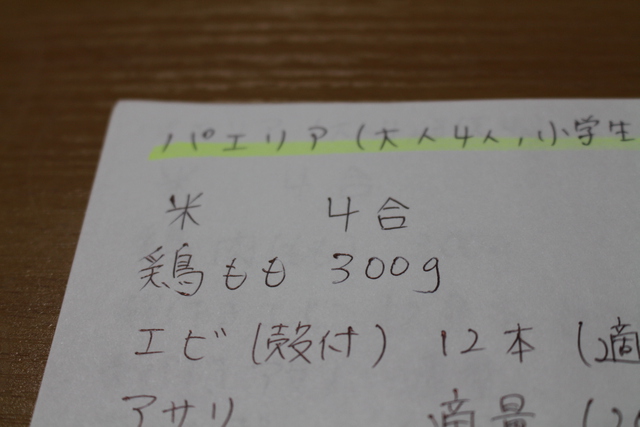 パエリア (大人4人,小学生
米 4合
鶏もも 300g
エビ (殻付) 12本 (2適
アサリ 適量 (2